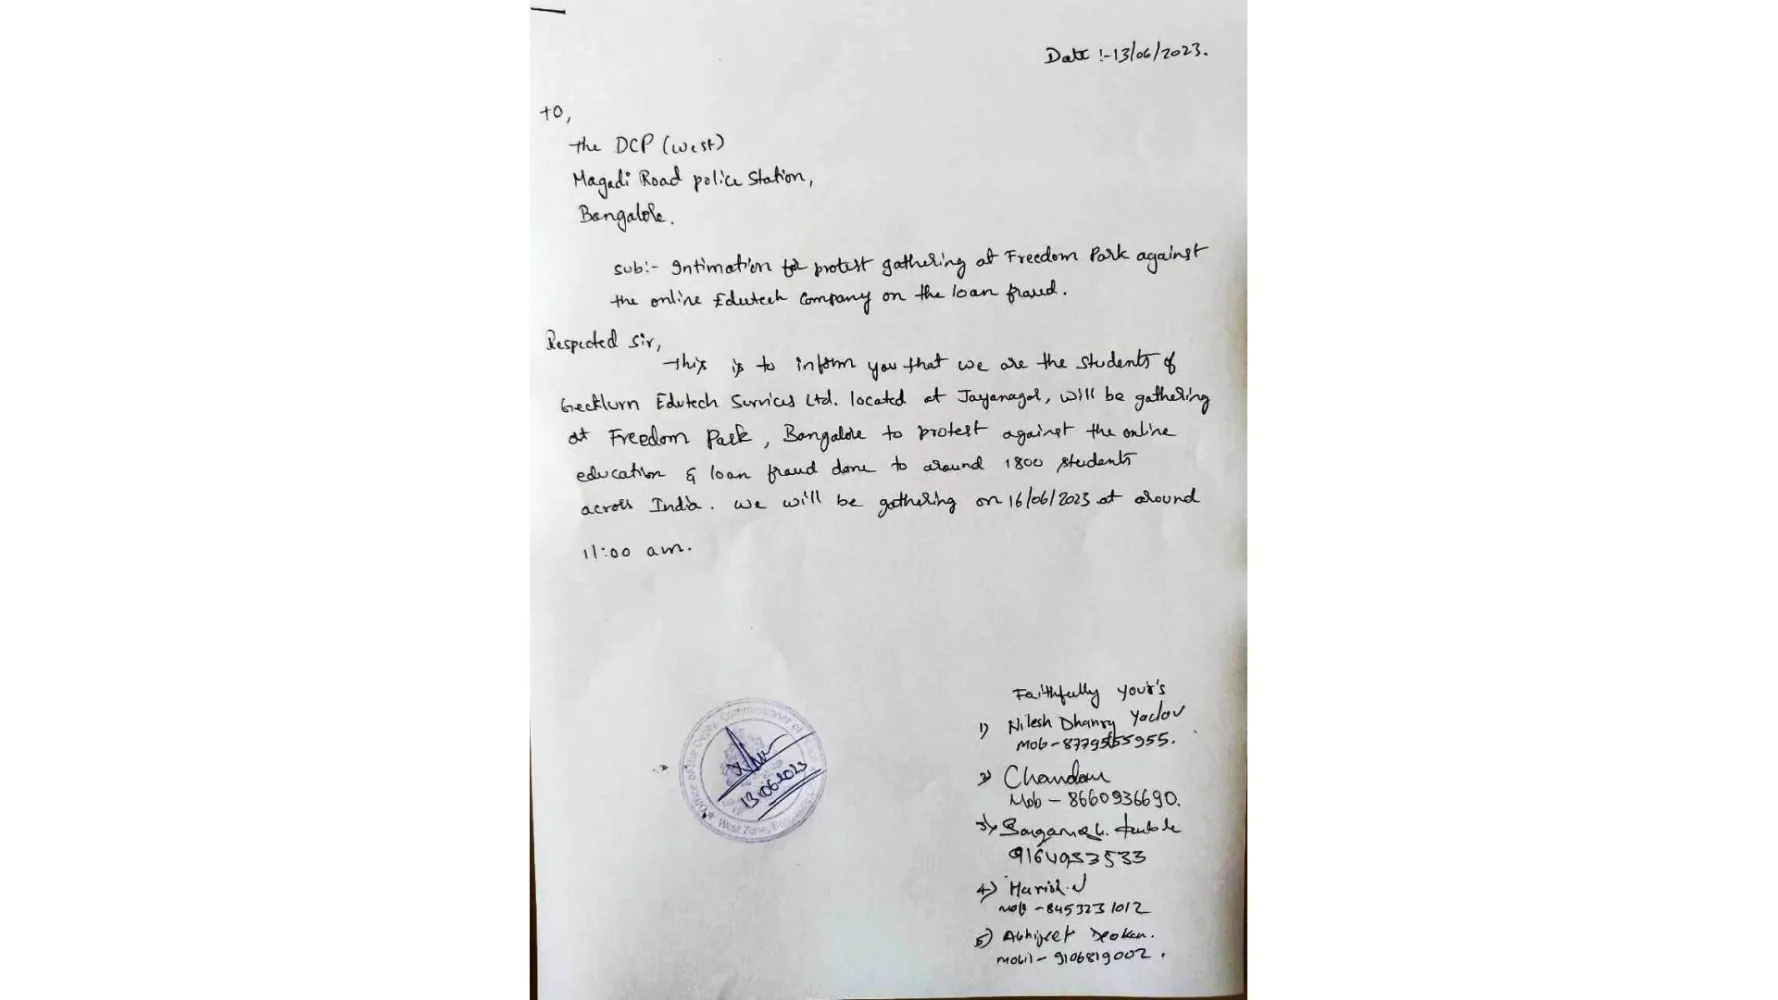 Date :-13/06/2023.
To,
the DCP (west)
Magadi Road police Station,
Bangalore.
sub:- Intimation for protest gathering at Freedom Park against
the online Edutech Company on the loan fraud.
Respected Sir,
This is to inform you that we are the students of
Geeklurn Edutech Services Ltd. located at Jayanagar, will be gathering
at Freedom Park, Bangalore to protest against the online
education & loan fraud done to around 1800 students
across India. We will be gathering on 16/06/2023 at around
11:00 am.
Faithfully Your's
1) Nilesh Dhanry Yadav
Mob-8779555955.
2) Chandan
Mob - 8660936690.
3)
9164933533
4) Harish.N
Mob -8453231012
5) Abhijeet
Mobil- 9106819002.
Office of the Deputy Commissioner of
West Zone,
13.06.2023